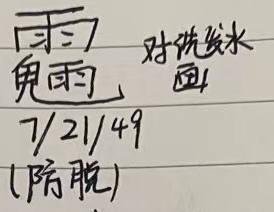 雨
鬼雨
对洗发水
画
7/21/49
(防脱)